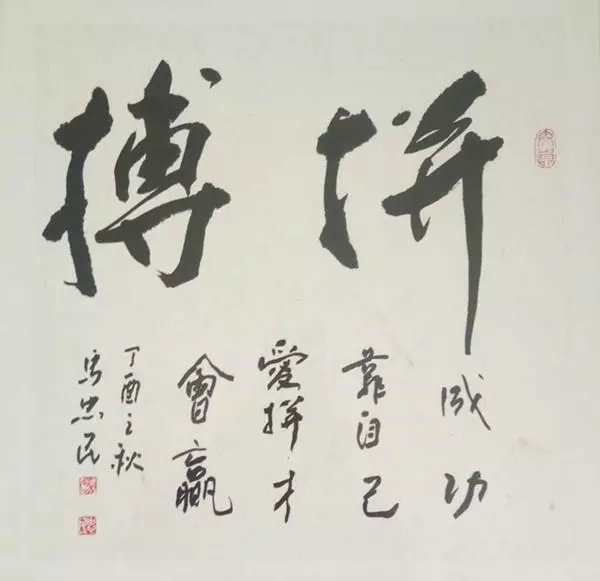 拼搏
成功
靠自己
愛拼才
會贏
丁酉之秋
馬忠民